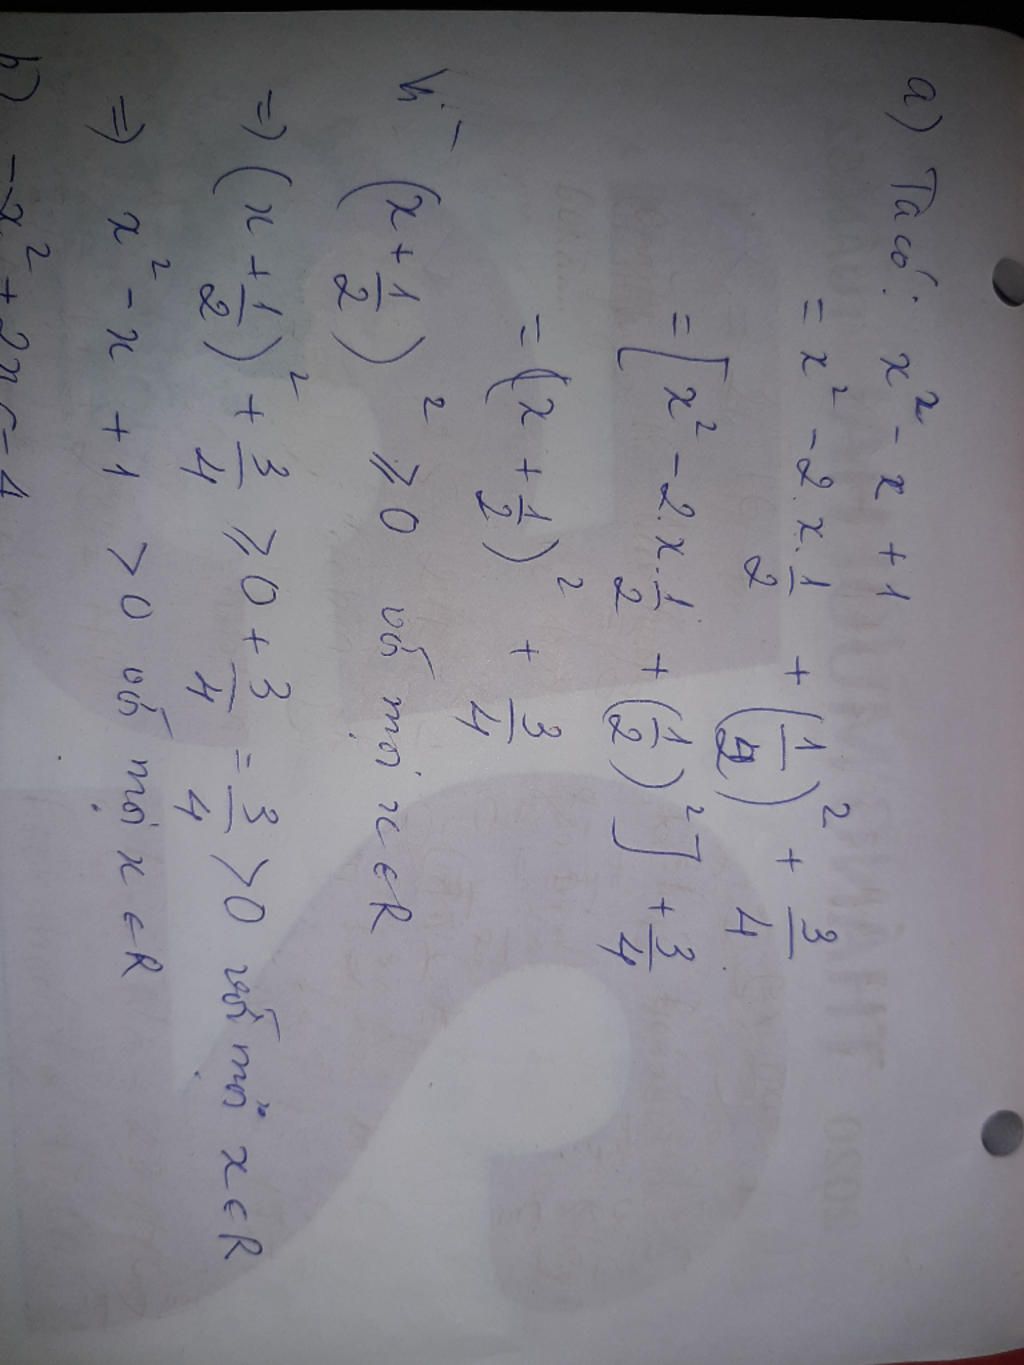 a) Ta có: x² - x + 1
= x² - 2.x.1/2 + (1/2)² + 3/4
= [x² - 2.x.1/2 + (1/2)²] + 3/4
= (x + 1/2)² + 3/4
Vì (x + 1/2)² ⩾ 0 với mọi x ∈ R
=> (x + 1/2)² + 3/4 ⩾ 0 + 3/4 = 3/4 > 0 với mọi x ∈ R
=> x² - x + 1 > 0 với mọi x ∈ R
b) -x² + 2x - 4